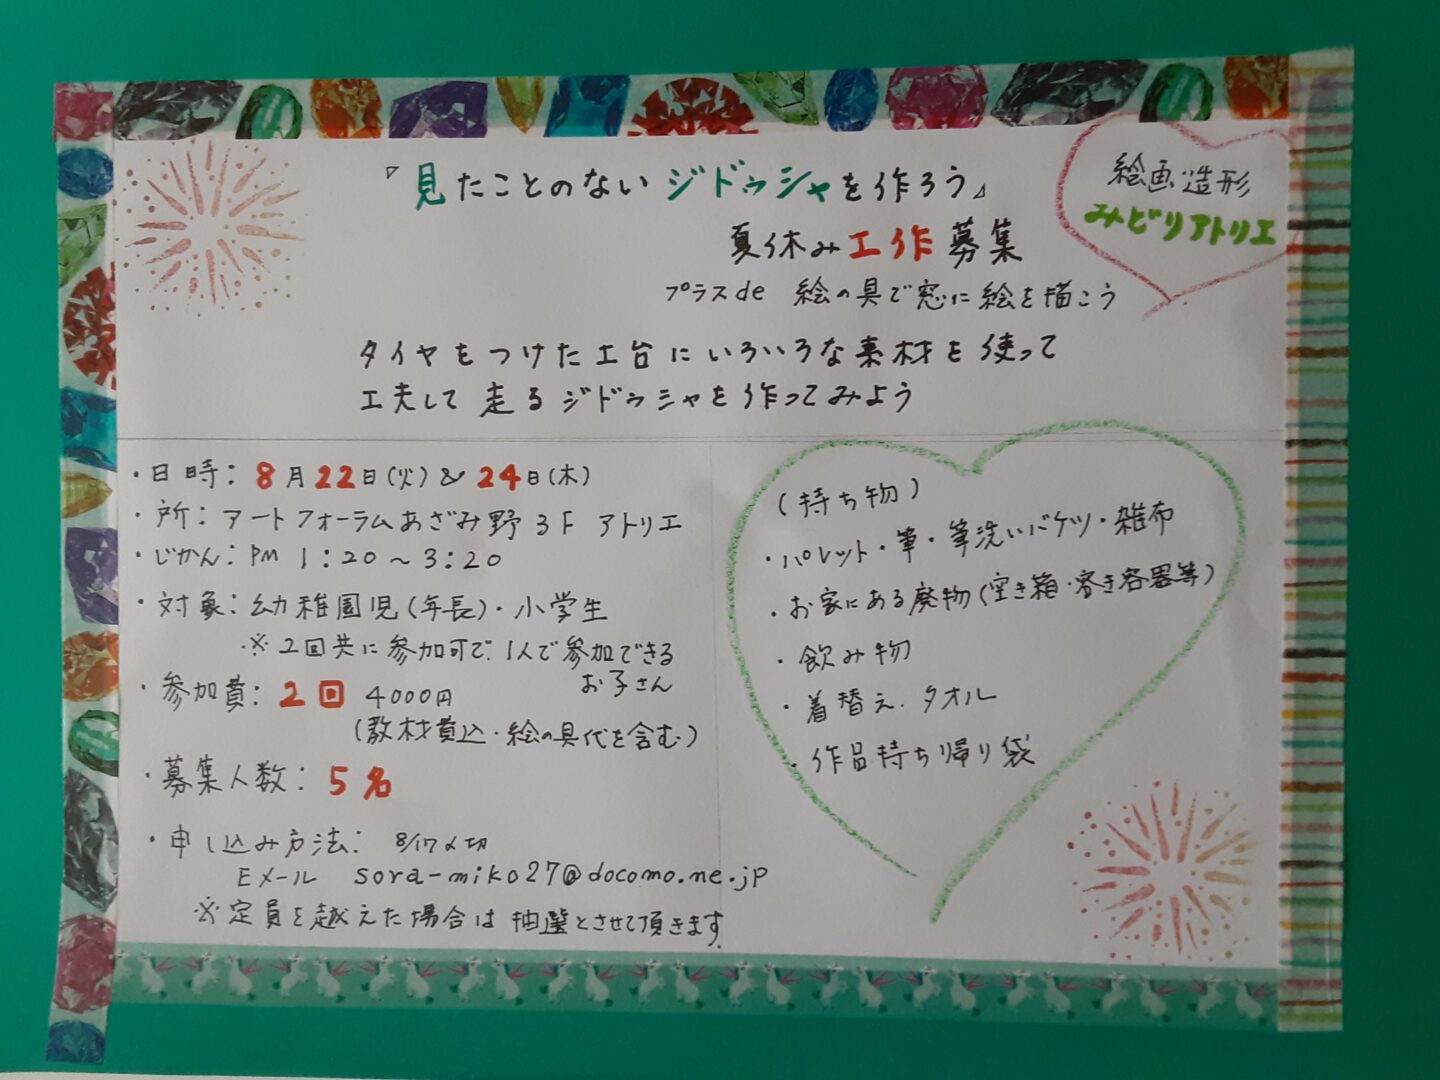 『見たことのないジドウシャを作ろう』
絵画造形
みどりアトリエ
夏休み工作募集
プラスde 絵の具で窓に絵を描こう
タイヤをつけた土台にいろいろな素材を使って
工夫して走るジドウシャを作ってみよう
・日時：8月22日(火)&24日(木)
・所：アートフォーラムあざみ野3F アトリエ
・じかん：PM 1：20～3：20
・対象：幼稚園児(年長)・小学生
・※2回共に参加可で、1人で参加できる
お子さん
・参加費：2回 4000円
(教材費込・絵の具代を含む)
・募集人数：5名
・申し込み方法：8/17〆切
Eメール sora-miko27@docomo.ne.jp
※定員を越えた場合は抽選とさせて頂きます
(持ち物)
・パレット・筆・筆洗いバケツ・雑布
・お家にある廃物(空き箱・空き容器等)
・飲み物
・着替え．タオル
・作品持ち帰り袋